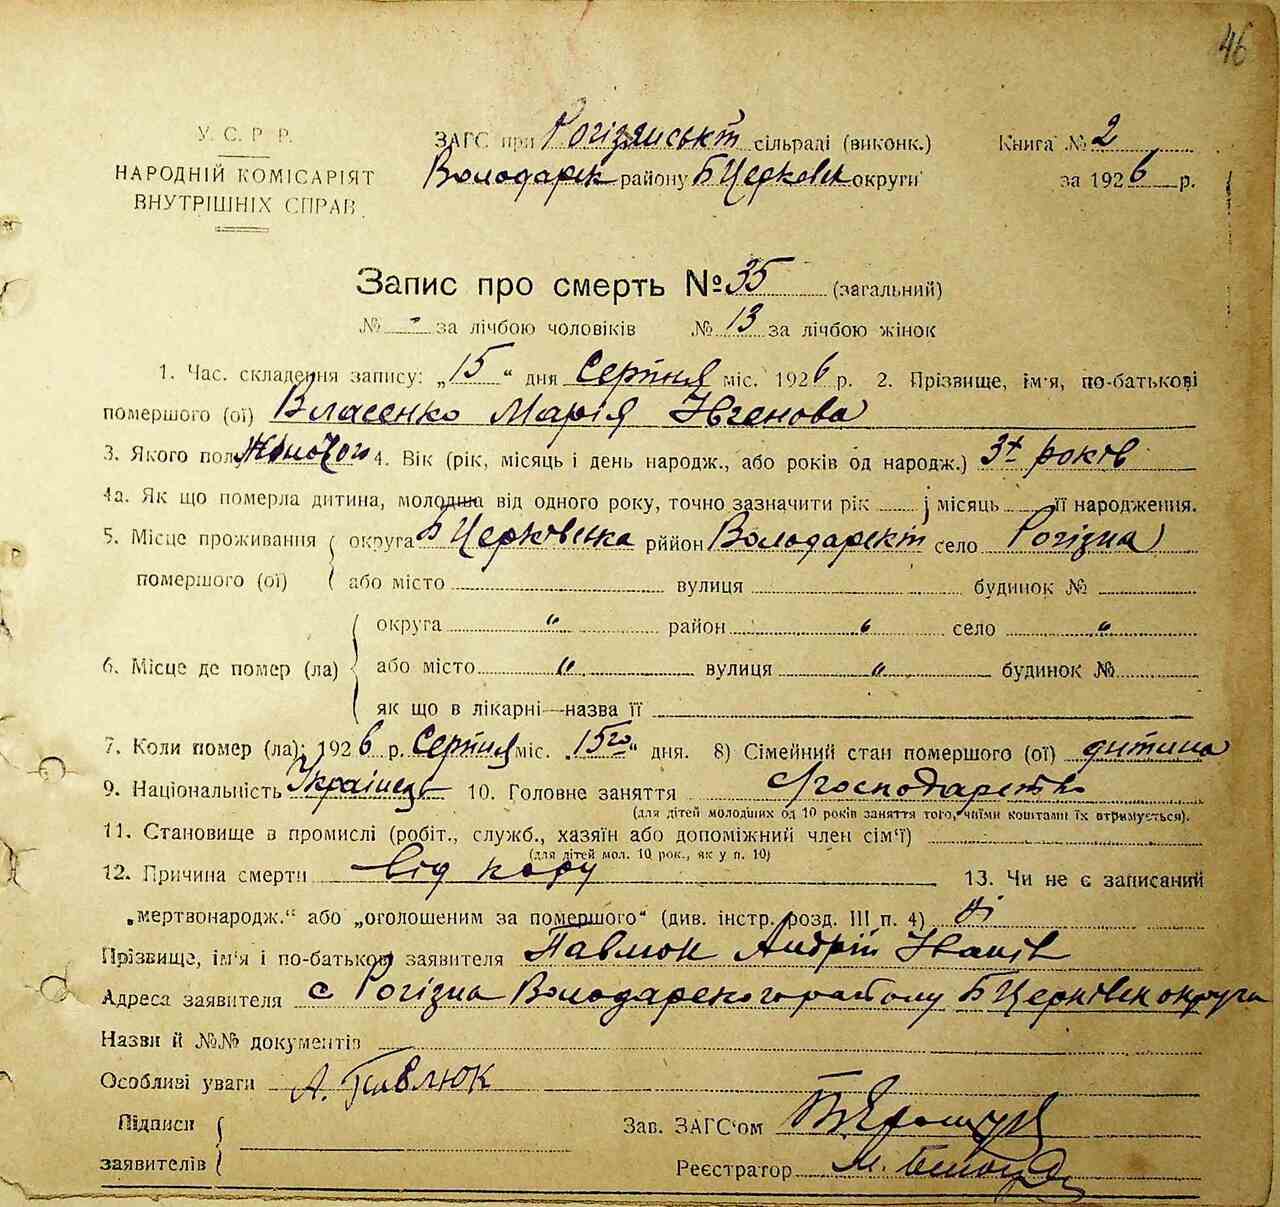 46
У. С. Р. Р.
НАРОДНІЙ КОМІСАРІЯТ
ВНУТРІШНІХ СПРАВ
ЗАГС при сільраді (виконк.)
Володарськ району Б Церковськ округи
Книга № 2
за 1926 р.
Запис про смерть № 35 (загальний)
№ - за лічбою чоловіків № 13 за лічбою жінок
1. Час. складення запису: „15“ дня Серпня міс. 1926 р. 2. Прізвище, ім'я, по-батькові
помершого (ої) Власенко Марія Івгенова
3. Якого полу Жіночого 4. Вік (рік, місяць і день народж., або років од народж.) 3 років
4а. Як що померла дитина, молодша від одного року, точно зазначити рік і місяць її народження.
5. Місце проживання помершого (ої) округа Б Церківська рййон Володарськ село Рогізна
або місто вулиця будинок №
6. Місце де помер (ла) округа " район " село "
або місто " вулиця " будинок №
як що в лікарні—назва її
7. Коли помер (ла): 1926 р. Серпня міс. „15го“ дня. 8) Сімейний стан помершого (ої) дитина
9. Національність Українець 10. Головне заняття
(для дітей молодших од 10 років заняття того, чиїми коштами їх втримується).
11. Становище в промислі (робіт., служб., хазяїн або допоміжний член сім'ї)
(для дітей мол. 10 рок., як у п. 10)
12. Причина смерти від кору 13. Чи не є записаний
„мертвонародж.“ або „оголошеним за помершого“ (див. інстр. розд. III п. 4) Ні
Прізвище, ім'я і по-батькові заявителя Павлюк Андрій Іванів
Адреса заявителя с Рогізна Володарського району Б Церківськ округа
Назви й №№ документів
Особливі уваги А. Павлюк
Підписи заявителів
Зав. ЗАГС'ом
Реєстратор М.